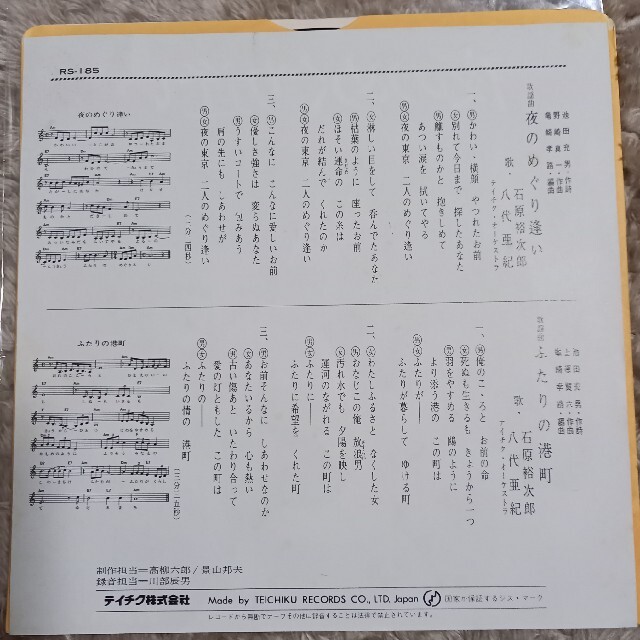 RS-185
歌謡曲 夜のめぐり逢い
池田充男・作詩
野崎真一・作曲
竜崎孝路・編曲
歌・
石原裕次郎
八代亜紀
テイチク・オーケストラ
一、男かわいゝ横顔 やつれたお前
女別れて今日まで 探したあなた
男離すものかと 抱きしめて
あつい涙を 拭いてやる
男女夜の東京 二人のめぐり逢い
二、女淋しい目をして 呑んでたあなた
男枯葉のように 座ったお前
女ほそい運命の この糸は
だれが結んで くれたのか
男女夜の東京 二人のめぐり逢い
三、男こんなに こんなに愛しいお前
女優しさ強さは 変らぬあなた
男うすいコートで 包みあう
肩の先にも しあわせが
男女夜の東京 二人のめぐり逢い
夜のめぐり逢い
歌謡曲 ふたりの港町
池田充男・作詩
上原賢六・作曲
竜崎孝路・編曲
歌・
石原裕次郎
八代亜紀
テイチク・オーケストラ
一、男俺のこゝろと お前の命
女死ぬも生きるも きょうから一つ
男羽をやすめる 陽のように
より添う港の この町は
男女ふたりが──
ふたりが暮らして ゆける町
二、女わたしふるさと なくした女
男おなじこの俺 放浪男
女汚れ水でも 夕陽を映し
運河のながれる この町は
男女ふたりに──
ふたりに希望を くれた町
三、男お前そんなに しあわせなのか
女あなたいるから 心も熱い
男古い傷あと いたわり合って
愛の灯ともした この町は
男女ふたりの──
ふたりの情の 港町
(三分二五秒)
ふたりの港町
制作担当=高柳六郎/景山邦夫
録音担当=川部辰男
テイチク株式会社 Made by TEICHIKU RECORDS CO., LTD. Japan 国家が保証するジス・マーク
レコードから無断でテープその他に録音することは法律で禁止されています。